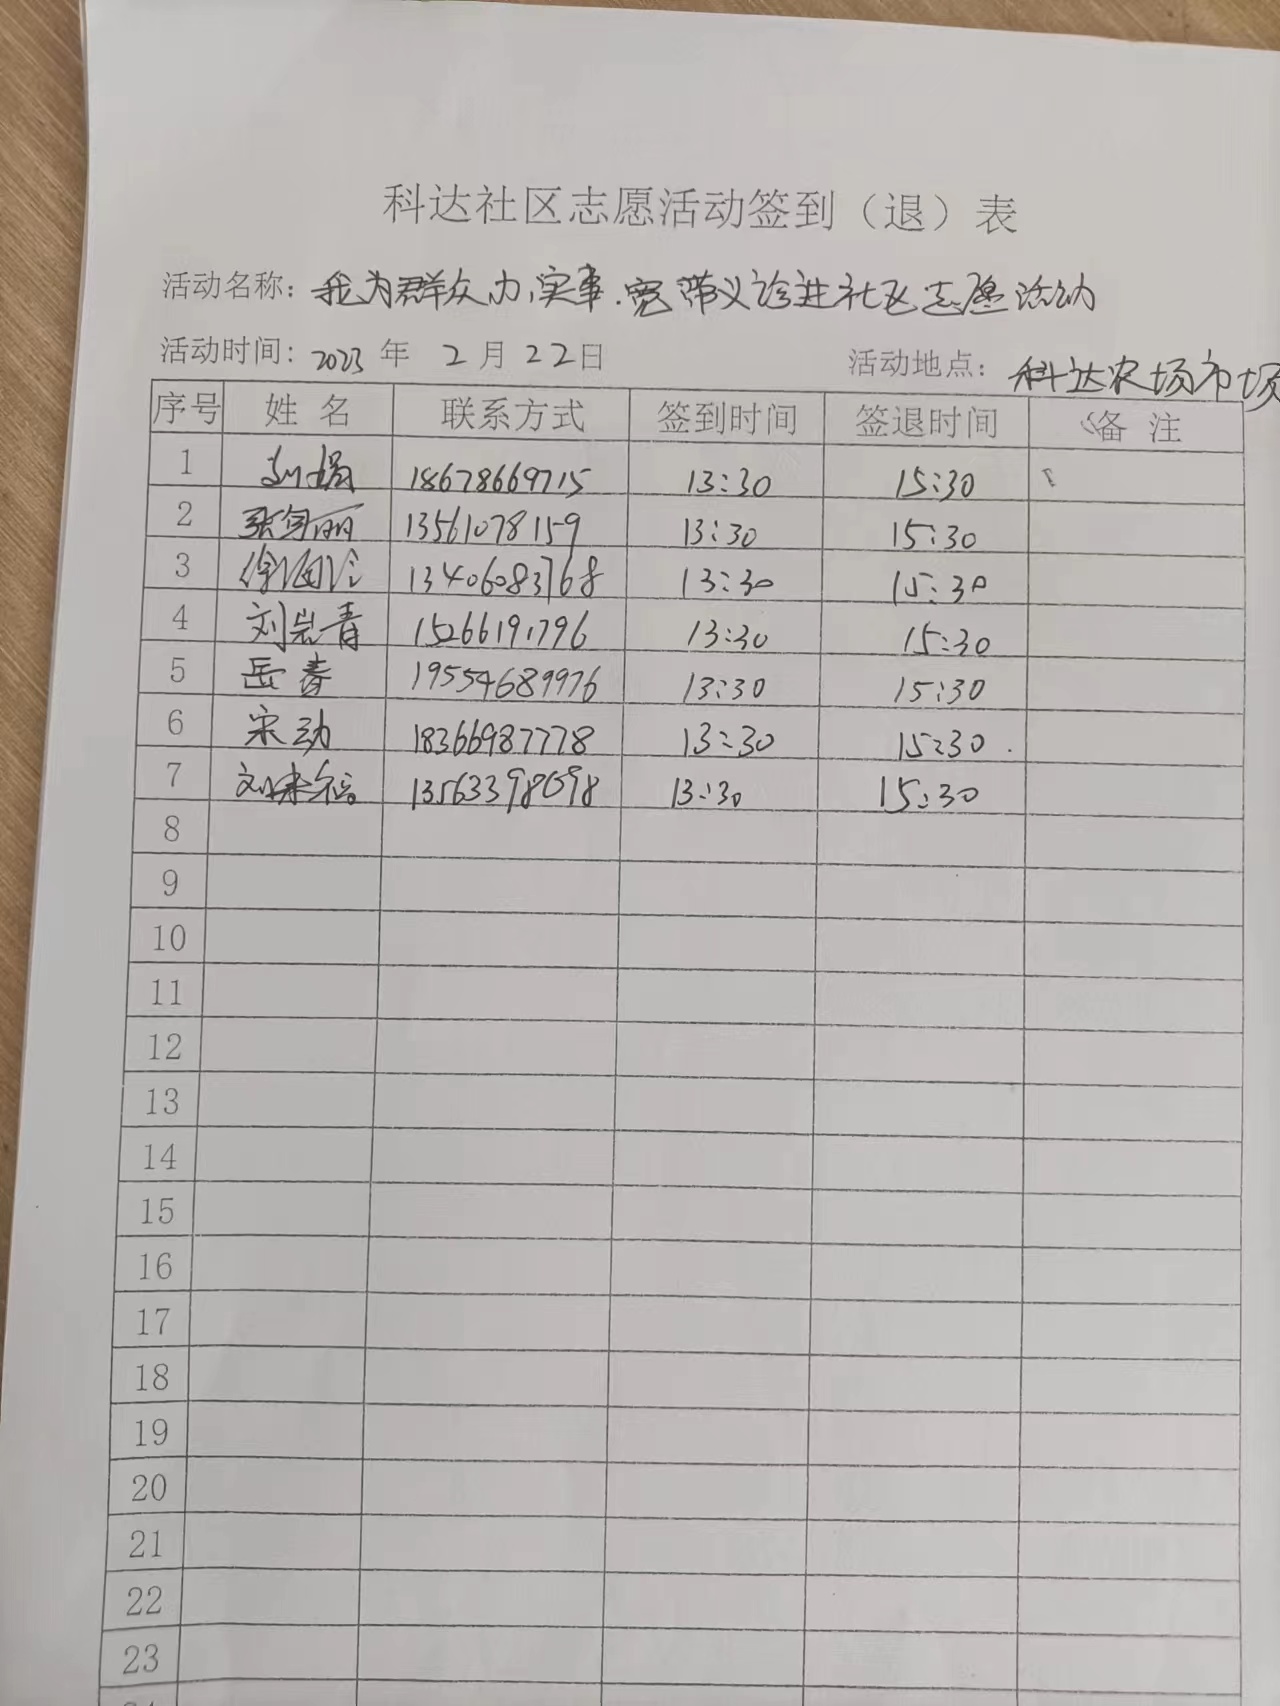 科达社区志愿活动签到（退）表
活动名称：我为群众办实事.宽带义诊进社区志愿活动
活动时间：2023年 2月22日 活动地点：科达农场市场
序号 姓名 联系方式 签到时间 签退时间 备注
1 18678669715 13:30 15:30
2 张 丽 13561078159 13:30 15:30
3 徐 13406083768 13:30 15:30
4 刘岩青 15266191796 13:30 15:30
5 岳春 19554689976 13:30 15:30
6 宋动 18366987778 13:30 15:30
7 刘 13563398098 13:30 15:30
8
9
10
11
12
13
14
15
16
17
18
19
20
21
22
23